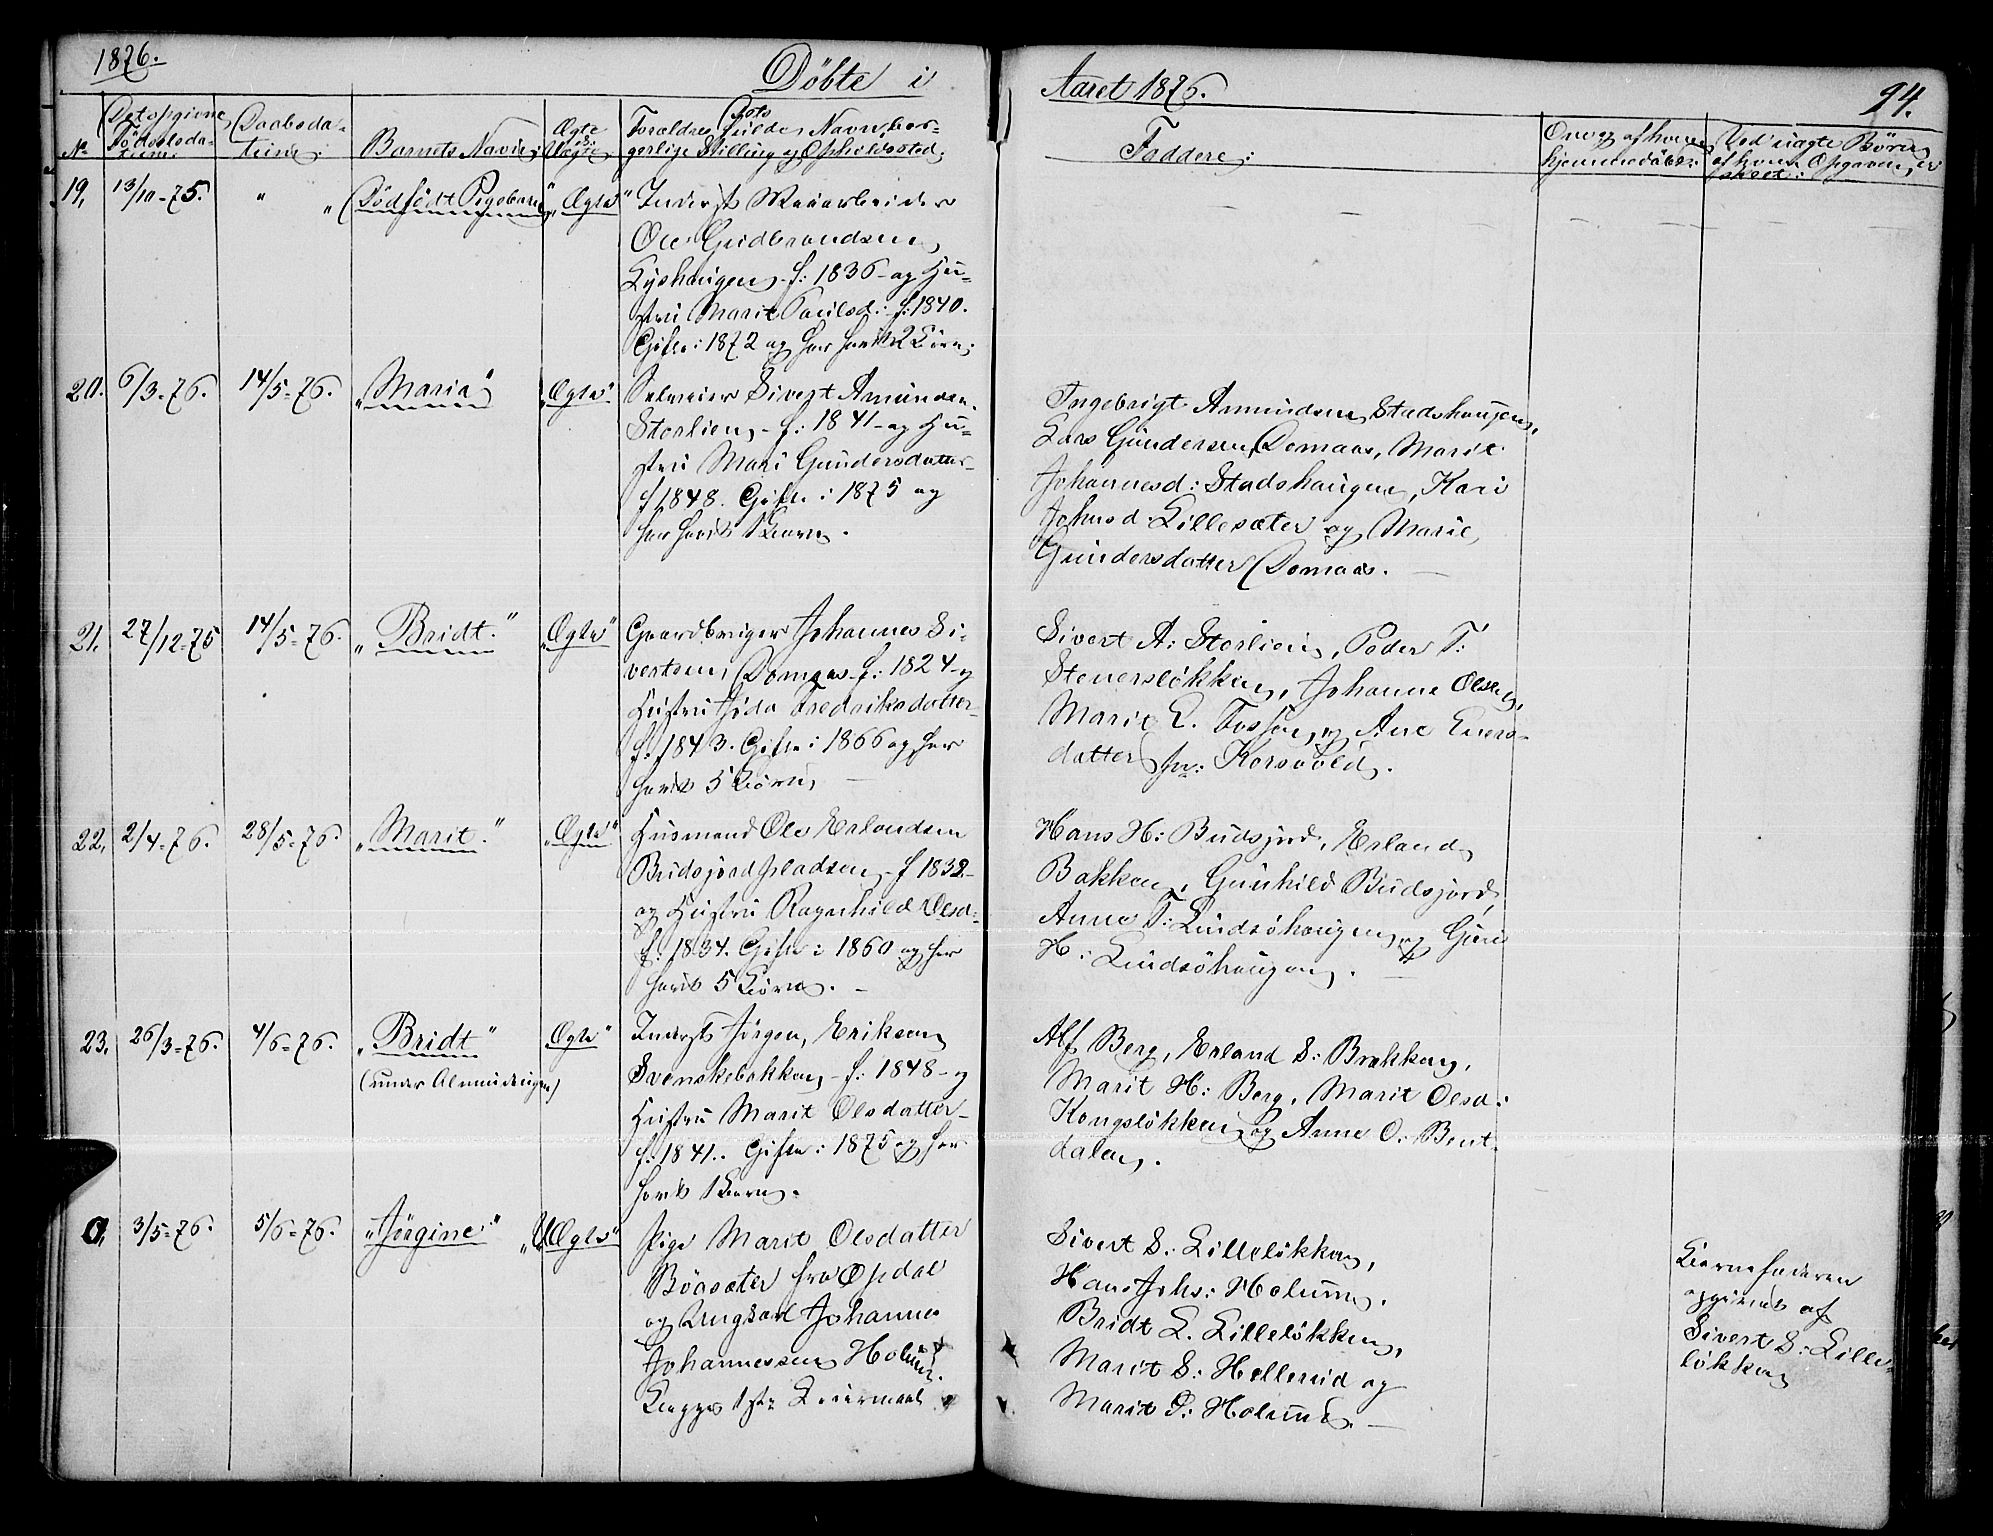 1876.
Döbte i
Aaret 1876.
94.
No
Det opgivne Födselsdatum.
Daabsdatum:
Barnets Navn:
Ægte el: Uægte
Forældres fulde Navn, borgerlige Stilling og Opholdssted.
Faddere:
Ved uægte Börn
af hvem Opgaven er skeet:
19.
13/10-75.
"
"
Dödfödt Pigebarn
"Ægte"
Inderst Veiarbeider
Ole Gudbrandsen
Lyshaugen f: 1836 og Hu-
stru Marit Paulsd: f: 1840.
Gifte: 1872 og har havt 2 Börn.
20.
6/3-76.
14/5-76.
"Maria"
"Ægte"
Sivert Amundsen
Storlien f: 1841 og Hu-
stru Mari Gundersdatter
f 1848. Gifte i 1875 og
har havt 1 Barn.
Ingebrigt Amundsen Stadshaugen,
Lars Gundersen Domaas, Marit
Johannesd: Stadshaugen, Kari
Johnsd: Lillesæter og Marie
Gundersdatter Domaas.
21.
27/12-75
14/5-76.
"Bridt."
"Ægte"
Gaardbruger Johannes Si-
vertsen Domaas f: 1824 og
Hustru Ida Fredriksdatter
f: 1843. Gifte i 1866 og har
havt 5 Börn
Sivert A: Storlien, Peder T:
Stenerslökken, Johanne Olsen,
Marit E. Tofsen, og Ane Eners-
datter fr: Korsvold.
22.
2/4-76.
28/5-76.
"Marit."
"Ægte"
Husmand Ole Erlandsen
Budsjordpladsen f 1832
og Hustru Ragnhild Olsd:
f: 1834. Gifte i 1860 og har
havt 5 Börn.
Hans H: Budsjord, Erland
Bakken, Gunhild Budsjord
Anne T: Lindsöhaugen og Guri
H: Lindsöhaugen.
23.
26/3-76.
4/6-76.
"Bridt"
(under Almindingen)
"Ægte"
Inderst Jörgen Eriksen
Svenskebakken f: 1848 og
Hustru Marit Olsdatter
f: 1841. Gifte: 1875 og har
havt 1 Barn.
Alf Berg, Erland S: Brækken,
Marit H: Berg, Marit Olsd:
Kongslökken og Anne O. Bent-
dalen.
0,
3/5-76.
5/6-76.
"Jörgine"
"UÆgte"
Pige Marit Olsdatter
Böasæter fra Opdal
og Ungkarl Johannes
Johannessen Holum.
Begges 1ste Leiermaal
Sivert S: Lillelökken,
Hans Johs: Holum,
Bridt L. Lillelökken,
Marit S: Hellerud og
Marit P: Holum.
Barnefaderen
opgivet af
Sivert S: Lille-
lökken